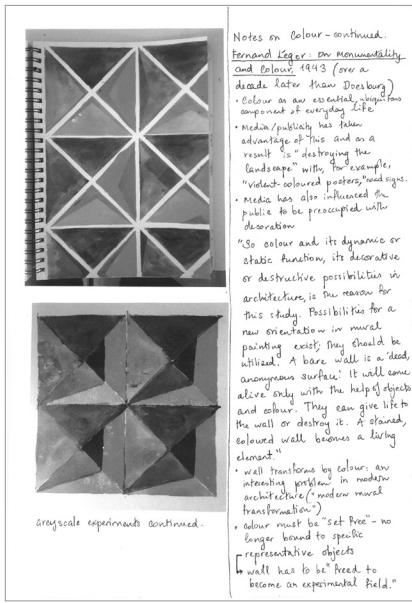 Notes on Colour - continued.
Fernand Leger: On Monumentality
and Colour, 1943 (over a
decade later than Doesburg)
• Colour as an essential, ubiquitous
component of everyday life
• Media/publicity has taken
advantage of this and as a
result is "destroying the
landscape" with, for example,
"violent-coloured posters," road signs.
• Media has also influenced the
public to be preoccupied with
decoration
"So colour and its dynamic or
static function, its decorative
or destructive possibilities in
architecture, is the reason for
this study. Possibilities for a
new orientation in mural
painting exist; they should be
utilized. A bare wall is a 'dead,
anonymous surface'. It will come
alive only with the help of objects
and colour. They can give life to
the wall or destroy it. A stained,
coloured wall becomes a living
element."
• wall transforms by colour: an
interesting problem in modern
architecture ("modern mural
transformation")
• colour must be "set free" - no
longer bound to specific
representative objects
↳ wall has to be "freed to
become an experimental field."
Greyscale experiments continued.